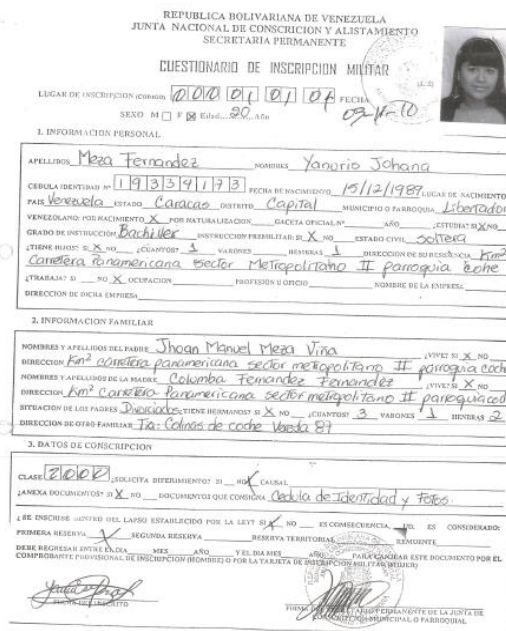 REPUBLICA BOLIVARIANA DE VENEZUELA
JUNTA NACIONAL DE CONSCRICION Y ALISTAMIENTO
SECRETARIA PERMANENTE
CUESTIONARIO DE INSCRIPCION MILITAR
LUGAR DE INSCRIPCION (CODIGO) 000 01 01 04 FECHA
SEXO M F X Edad 20 Año
1. INFORMACION PERSONAL
APELLIDOS Meza Fernandez NOMBRES Yanuris Johana
CEDULA IDENTIDAD Nº 19339173 FECHA DE NACIMIENTO 15/12/1989 LUGAR DE NACIMIENTO
PAIS Venezuela ESTADO Caracas DISTRITO Capital MUNICIPIO O PARROQUIA Libertador
VENEZOLANO: POR NACIMIENTO X POR NATURALIZACION GACETA OFICIAL Nº AÑO ¿ESTUDIA? SI X NO
GRADO DE INSTRUCCIÓN Bachiller INSTRUCCION PREMILITAR: SI X NO ESTADO CIVIL soltera
¿TIENE HIJOS? SI X NO ¿CUANTOS? 1 VARONES HEMBRAS 1 DIRECCION DE SU RESIDENCIA Km2
Carretera Panamericana sector Metropolitano II parroquia coche
¿TRABAJA? SI NO X OCUPACION PROFESIÓN U OFICIO NOMBRE DE LA EMPRESA
DIRECCION DE DICHA EMPRESA
2. INFORMACION FAMILIAR
NOMBRES Y APELLIDOS DEL PADRE Jhoan Manuel Meza Viña ¿VIVE? SI X NO
DIRECCION Km2 carretera panamericana sector metropolitano II parroquia coche
NOMBRES Y APELLIDOS DE LA MADRE Columba Fernandez Fernandez ¿VIVE? SI X NO
DIRECCION Km2 Carretera Panamericana sector metropolitano II parroquia
SITUACION DE LOS PADRES Divorciados ¿TIENE HERMANOS? SI X NO ¿CUANTOS? 3 VARONES 1 HEMBRAS 2
DIRECCION DE OTRO FAMILIAR Tia: Colinas de coche Vereda 87
3. DATOS DE CONSCRIPCION
CLASE 2000 ¿SOLICITA DIFERIMIENTO? SI NO X CAUSAL
¿ANEXA DOCUMENTOS? SI X NO DOCUMENTOS QUE CONSIGNA Cedula de Identidad y Fotos.
¿SE INSCRIBE DENTRO DEL LAPSO ESTABLECIDO POR LA LEY? SI X NO ES CONSECUENCIA, UD. ES CONSIDERADO:
PRIMERA RESERVA SEGUNDA RESERVA RESERVA TERRITORIAL REMUENTE
DEBE REGRESAR ENTRE EL DIA MES AÑO Y EL DIA MES AÑO PARA CANJEAR ESTE DOCUMENTO POR EL
COMPROBANTE PROVISIONAL DE INSCRIPCION (HOMBRE) O POR LA TARJETA DE INSCRIPCION MILITAR (MUJER)
FIRMA DEL INSCRITO
FIRMA DEL SECRETARIO PERMANENTE DE LA JUNTA DE
CONSCRIPCIÓN MUNICIPAL O PARROQUIAL